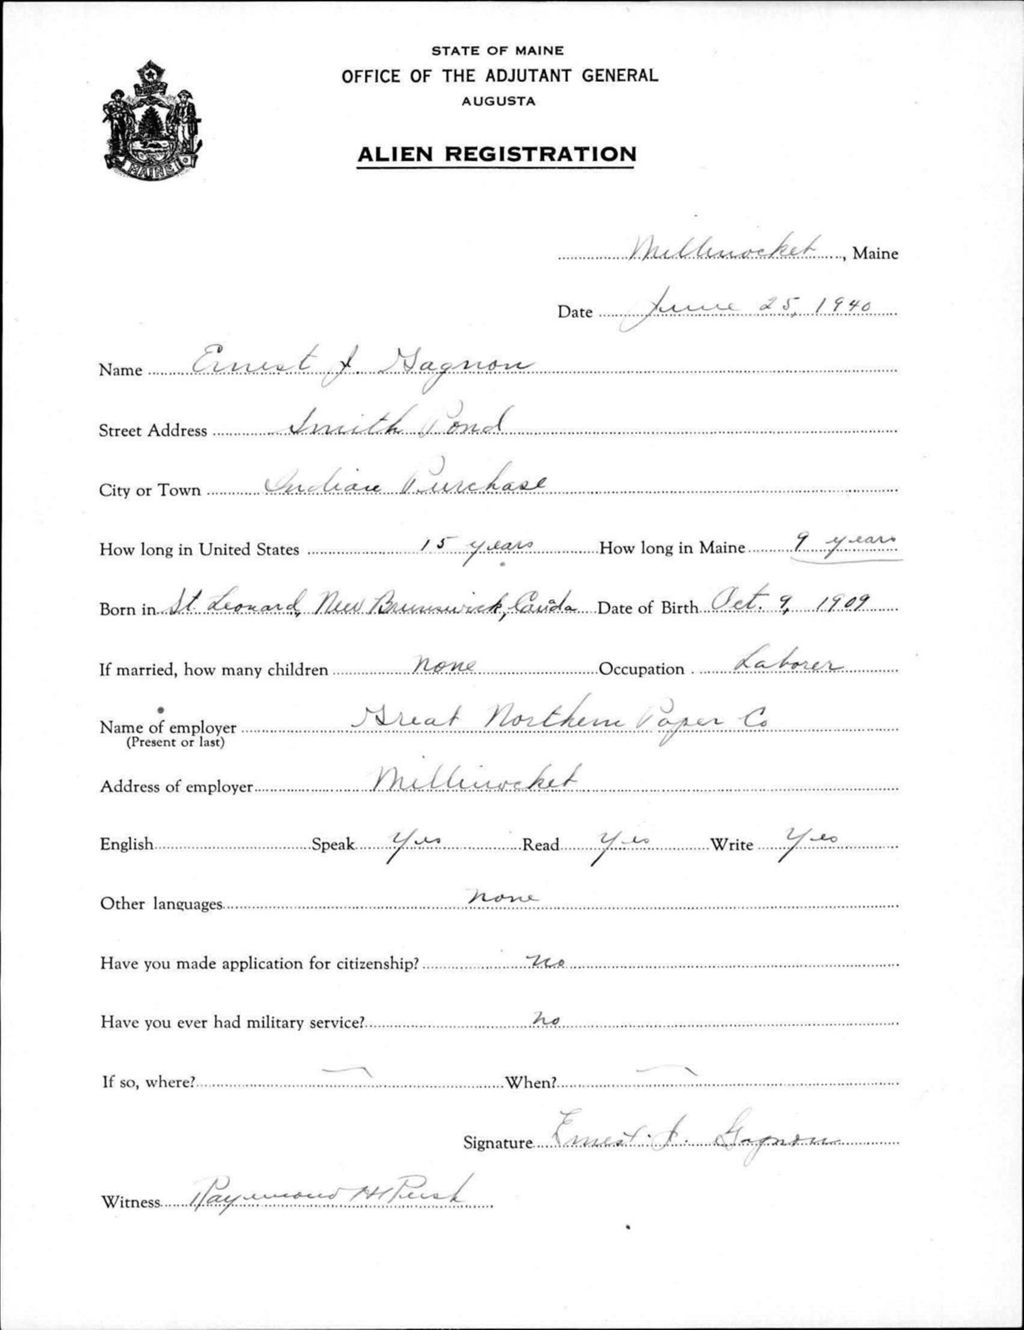 STATE OF MAINE
OFFICE OF THE ADJUTANT GENERAL
AUGUSTA
ALIEN REGISTRATION
MAINE
Millinocket, Maine
Date June 25, 1940
Name Ernest J. Gagnon
Street Address Smith Pond
City or Town Indian Purchase
How long in United States 15 years How long in Maine 9 years
Born in St Leonard, New Brunswick, Canda Date of Birth Oct. 9, 1909
If married, how many children none Occupation Laborer
Name of employer Great Northern Paper Co
(Present or last)
Address of employer Millinocket
English Speak Yes Read Yes Write Yes
Other languages none
Have you made application for citizenship? no
Have you ever had military service? no
If so, where? When?
Signature Ernest J. Gagnon
Witness Raymond H